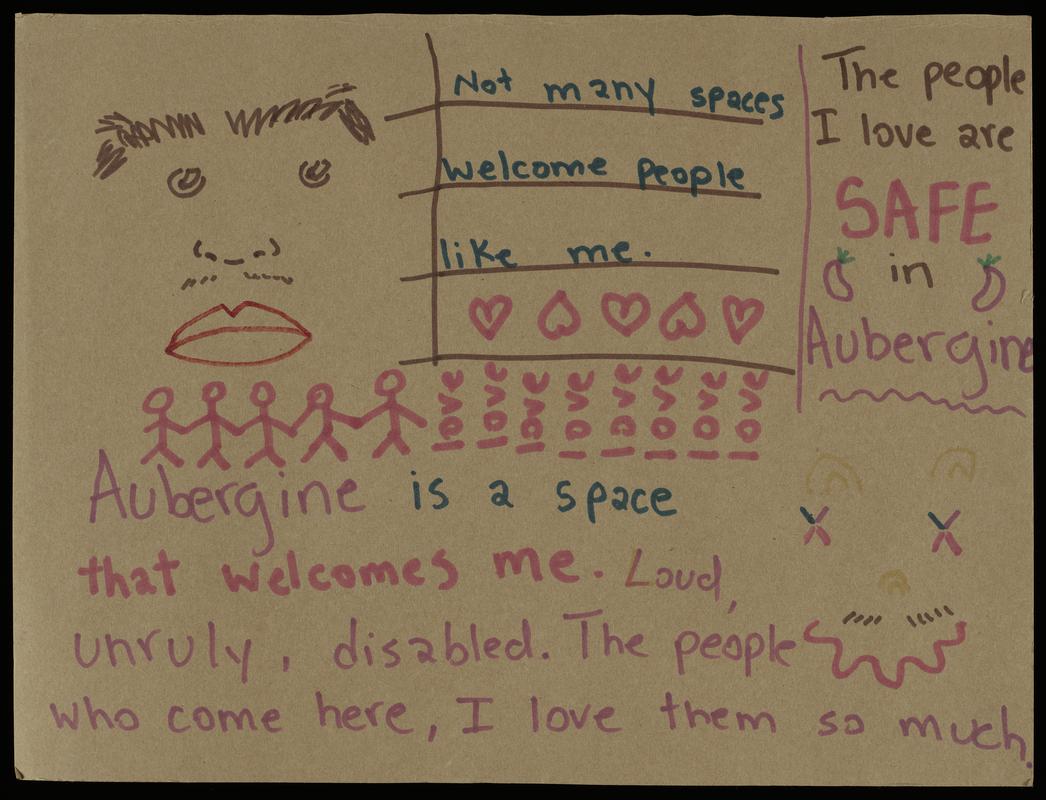 Not many spaces
welcome people
like me.
The people
I love are
SAFE
in
Aubergine
Aubergine is a space
that welcomes me. Loud,
unruly, disabled. The people
who come here, I love them so much.